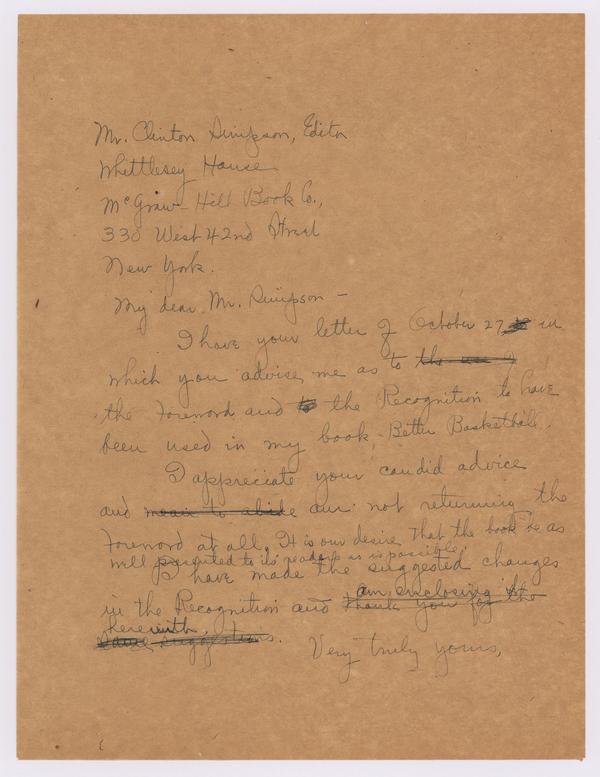 Mr. Clinton Simpson, Editor
Whittlesey House
McGraw-Hill Book Co.,
330 West 42nd Street
New York.
My dear Mr. Simpson -
I have your letter of October 27 in
which you advise me as to the use of
the Foreword and to the Recognition to have
been used in my book - Better Basketball.
I appreciate your candid advice
and mean to abide am not returning the
Foreword at all. It is our desire that the book be as
well presented to its readers as is possible.
I have made the suggested changes
am enclosing the
in the Recognition and thank you for the
herewith.
same suggestions.
Very truly yours,